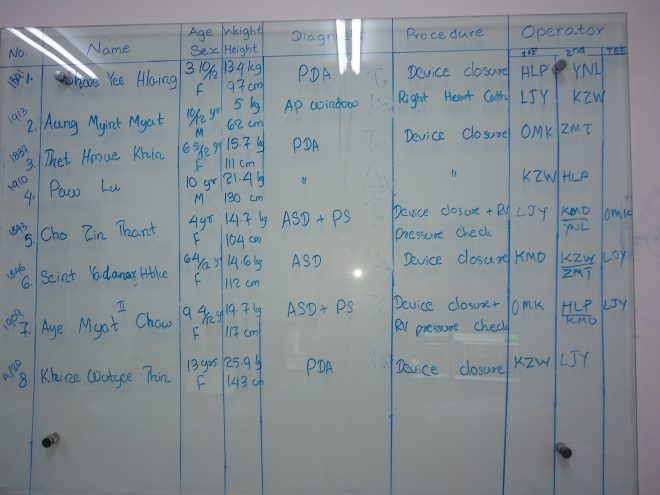 No. Name Age Sex Weight Height Diagnosis Procedure Operator
1st 2nd TEE
1. Yee Hlaing 3 10/12 F 13.4 kg 97 cm PDA Device closure HLP YNL
1913 2. Aung Myint Myat 10/12 yr M 5 kg 62 cm AP window Right Heart Cath LJY KZW
3. Thet Hmue Khin 6 5/12 yr F 15.7 kg 111 cm PDA Device closure OMK ZMT
1910 4. Paw Lu 10 yr M 21.4 kg 130 cm " " KZW HLP
1893 5. Cho Zin Thant 4 yr F 14.7 kg 104 cm ASD + PS Device closure + RV pressure check LJY KMO YNL OMK
1846 6. Seint Yadanar Htike 6 4/12 yr F 14.6 kg 112 cm ASD Device closure KMO KZW ZMT
1909 7. Aye Myat II Chaw 9 4/12 yr F 19.7 kg 117 cm ASD + PS Device closure + RV pressure check OMK HLP KMO LJY
8. Khine Thin 13 yrs F 25.9 kg 143 cm PDA Device closure KZW LJY